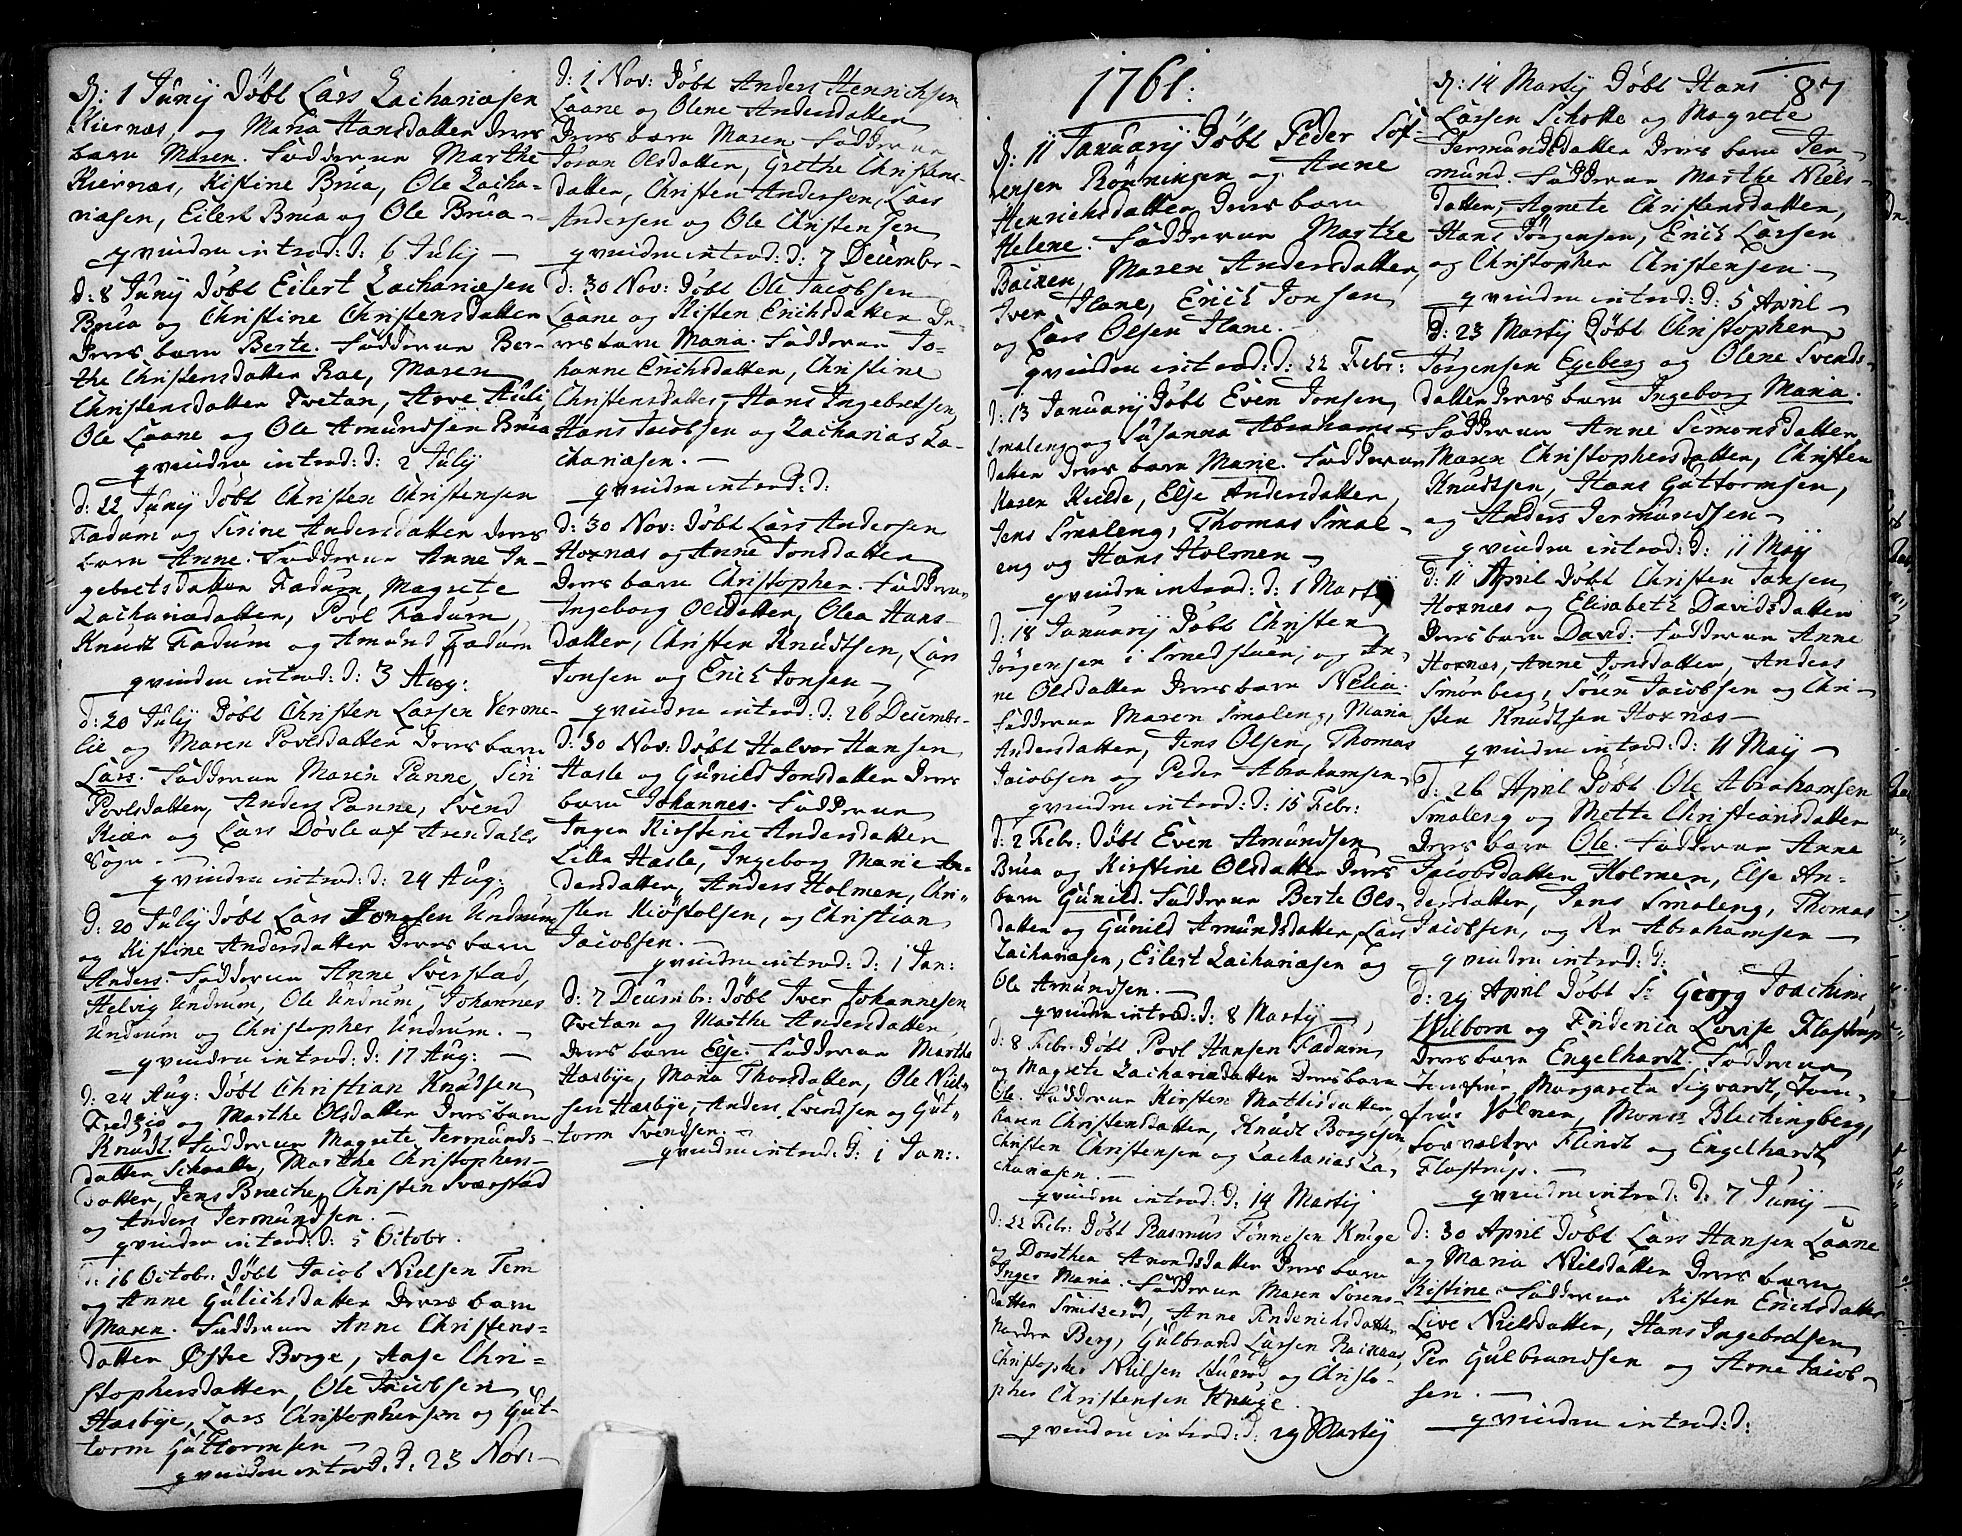 D: 1 Junij Døbt Lars Zachariæsen
Kiernæs, og Maria Hansdatter deres
barn Maren. Fadderne Marthe
Kiernæs, Kistine Brua, Ole Zacha-
riasen, Eilert Brua og Ole Brua -
qvinden introd: d: 6 Julij -
d: 8 Junij Døbt Eilert Zachariæsen
Brua og Christine Christensdatter
deres barn Berte. Fadderne Ber-
the Christensdatter Rae, Maren
Christensdatter Tvetan, Arve Auli
Ole Laane og Ole Amundsen Brua
qvinden introd: d: 2 Julij
d: 22 Junij Døbt Christen Christensen
Fadum og Sirine Andersdatter deres
barn Anne. Fadderne Anne In-
gebretsdatter Fadum, Magrete
Zachariædatter, Povl Fadum,
Knudt Fadum og Amund Fadum
qvinden introd: d: 3 Aug:
d: 20 Julij Døbt Christen Larsen Verme-
lie og Maren Povlsdatter deres barn
Lars. Fadderne Maren Panne, Siri
Povlsdatter, Anders Panne, Svend
Kiær og Lars Døvle af Arendahls
Sogn -
qvinden introd: d: 24 Aug:
d: 20 Julij Døbt Lars Undrum
og Kistine Andersdatter deres barn
Anders. Fadderne Anne Sverstad,
Helvig Undrum, Ole Undrum, Johannes
Undrum og Christopher Undrum. -
qvinden introd: d: 17 Aug: -
d: 24 Aug: Døbt Christian Knudsen
Fredziø og Marthe Olsdatter deres barn
Knudt. Fadderne Magrete Jermunds-
datter Schaatte, Marthe Christophers-
datter, Jens Bræche, Christen Sværstad
og Anders Jermundsen. -
qvinden introd: d: 5 Octobr.
d: 16 Octobr: Døbt Jacob Nielsen Tem
og Anne Gulichsdatter deres barn
Maren. Fadderne Anne Christens-
datter Østre Borge, Aase Chri-
stophersdatter, Ole Jacobsen
Hæsbye, Lars Christophersen og Gut-
torm Guttormsen -
qvinden introd. d. 23 Nov: -
d: 1 Nov: Døbt Anders Henrichsen
Laane og Olene Andersdatter
deres barn Maren Fadderne
Joran Olsdatter, Grethe Christens-
datter, Christen Andersen, Lars
Andersen og Ole Christensen
qvinden introd: d: 7 Decembr -
d: 30 Nov: Døbt Ole Jacobsen
Laane og Kisten Erichsdatter De-
res barn Maria. Fadderne Jo-
hanne Erichsdatter, Christine
Christensdatter, Hans Ingebretsen,
Hans Jacobsen og Zacharias Za-
chariæsen. -
qvinden introd: d:
d: 30 Nov: Døbt Lars Andersen
Hoxnæs og Anne Jonsdatter
deres barn Christopher. Fadderne
Ingeborg Olsdatter, Olea Hans-
datter, Christen Knudtsen, Lars
Jonsen og Erich Jonsen -
qvinden introd: d: 26 Decembr -
d: 30 Nov: Døbt Halvor Hansen
Hasle og Gunild Jonsdatter deres
barn Johannes. Fadderne
Inger Kirstine Andersdatter
Lille Hasle, Ingeborg Marie An-
dersdatter, Anders Holmen, Chri-
sten Kiøstolsen, og Christian
Jacobsen. -
qvinden introd: d: 1 Jan:
d: 7 Decembr: Døbt Iver Johannesen
Tvetan og Marthe Andersdatter,
deres barn Else. Fadderne Marthe
Hæsbye, Maria Thorsdatter, Ole Niel-
sen Hæsbye, Anders Svendsen og Gut-
torm Svendsen. -
qvinden introd: d: 1 Jan:.
1761:
D: 11 Januarij Døbt Peder Sof-
rensen Rønningen og Anne
Henrichsdatter deres barn
Helene. Fadderne Marthe
Backen, Maren Andersdatter,
Iver Hane, Erich Jonsen
og Lars Olsen Hane. -
qvinden introd: d: 22 Febr:
d: 13 Januarij Døbt Even Jonsen
Smaleng og Susanna Abrahams-
datter deres barn Marie. Fadderne
Maren Kulde, Else Andersdatter,
Jens Smaleng, Thomas Smal-
eng og Hans Holmen -
qvinden introd: d: 1 Martij
d: 18 Januarij Døbt Christen
Jørgensen i Smedstuen, og An-
ne Olsdatter deres barn Nelia
Fadderne Maren Smaleng, Maria
Andersdatter, Jens Olsen, Thomas
Jacobsen og Peder Abrahamsen -
qvinden introd: d: 15 Febr:
d: 2 Febr: Døbt Even Amundsen
Brua og Kirstine Olsdatter deres
barn Gunild. Fadderne Berte Ols-
datter og Gunild Amundsdatter, Lars
Zachariæsen, Eilert Zachariæsen og
Ole Amundsen. -
qvinden introd: d: 8 Martij -
d: 8 Febr: Døbt Povl Hansen Fadum
og Magrete Zachariædatter deres barn
Ole. Fadderne Kirsten Mathisdatter,
Karen Christensdatter, Knudt Borgesen,
Christen Christensen og Zacharias Za-
chariæsen. -
qvinden introd: d: 14 Martij
d: 22 Febr: Døbt Rasmus Tønnesen Knuge
og Dorthea Amondsdatter deres barn
Inger Maria. Fadderne Maren Sørens-
datter Smidsrød, Anne Friderichsdatter
Nordre Berg, Gulbrand Larsen Raknaas,
Christopher Nielsen og Christo-
pher Christensen Knuge.
qvinden introd: d: 29 Martij
87
D: 14 Martij Døbt Hans
Larsen Schotte og Magrete
Jermundsdatter deres barn Jer-
mund. Fadderne Marthe Niels-
datter, Agnete Christensdatter,
Hans Jørgensen, Erich Larsen
og Christopher Christensen -
qvinden introd: d: 5 April -
D: 23 Martij Døbt Christopher
Jørgensen Egeberg og Olene Svends-
datter deres barn Ingeborg Maria.
Fadderne Anne Simonsdatter,
Maren Christophersdatter, Christen
Knudtsen, Hans Guttormsen,
og Anders Jermundsen -
qvinden introd: d: 11 Maij
d: 11 April Døbt Christen Jansen
Hoxnæs og Elisabeth Davidsdatter
deres barn David. Fadderne Anne
Hoxnæs, Anne Jonsdatter, Anders
Smørberg, Søren Jacobsen og Chri-
sten Knudtsen Hoxnæs -
qvinden introd: d: 11 Maij -
d: 26 April Døbt Ole Abrahamsen
Smaleng og Mette Christiansdatter
deres barn Ole. Fadderne Anne
Jacobsdatter Holmen, Else An-
dersdatter, Jens Smaleng, Thomas
Jacobsen, og Per Abrahamsen -
qvinden introd: d:
d: 29 April Døbt Sr Georg Joachim
Wilborn og Friderica Lovise Flostrup
deres barn Engelhardt. Fadderne
Jomfrue Margareta Sigvardt, Jom-
frue Volner, Monsr Blechingberg,
Forvalter Flindt og Engelhardt
Flostrup. -
qvinden introd: d: 7 Junij -
d: 30 April Døbt Lars Hansen Laane
og Maria Nielsdatter deres barn
Kistine. Fadderne Kisten Erichsdatter
Live Nielsdatter, Hans Ingebretsen,
Per Gulbrandsen og Arne Jacob-
sen. -
qvinden introd: d: